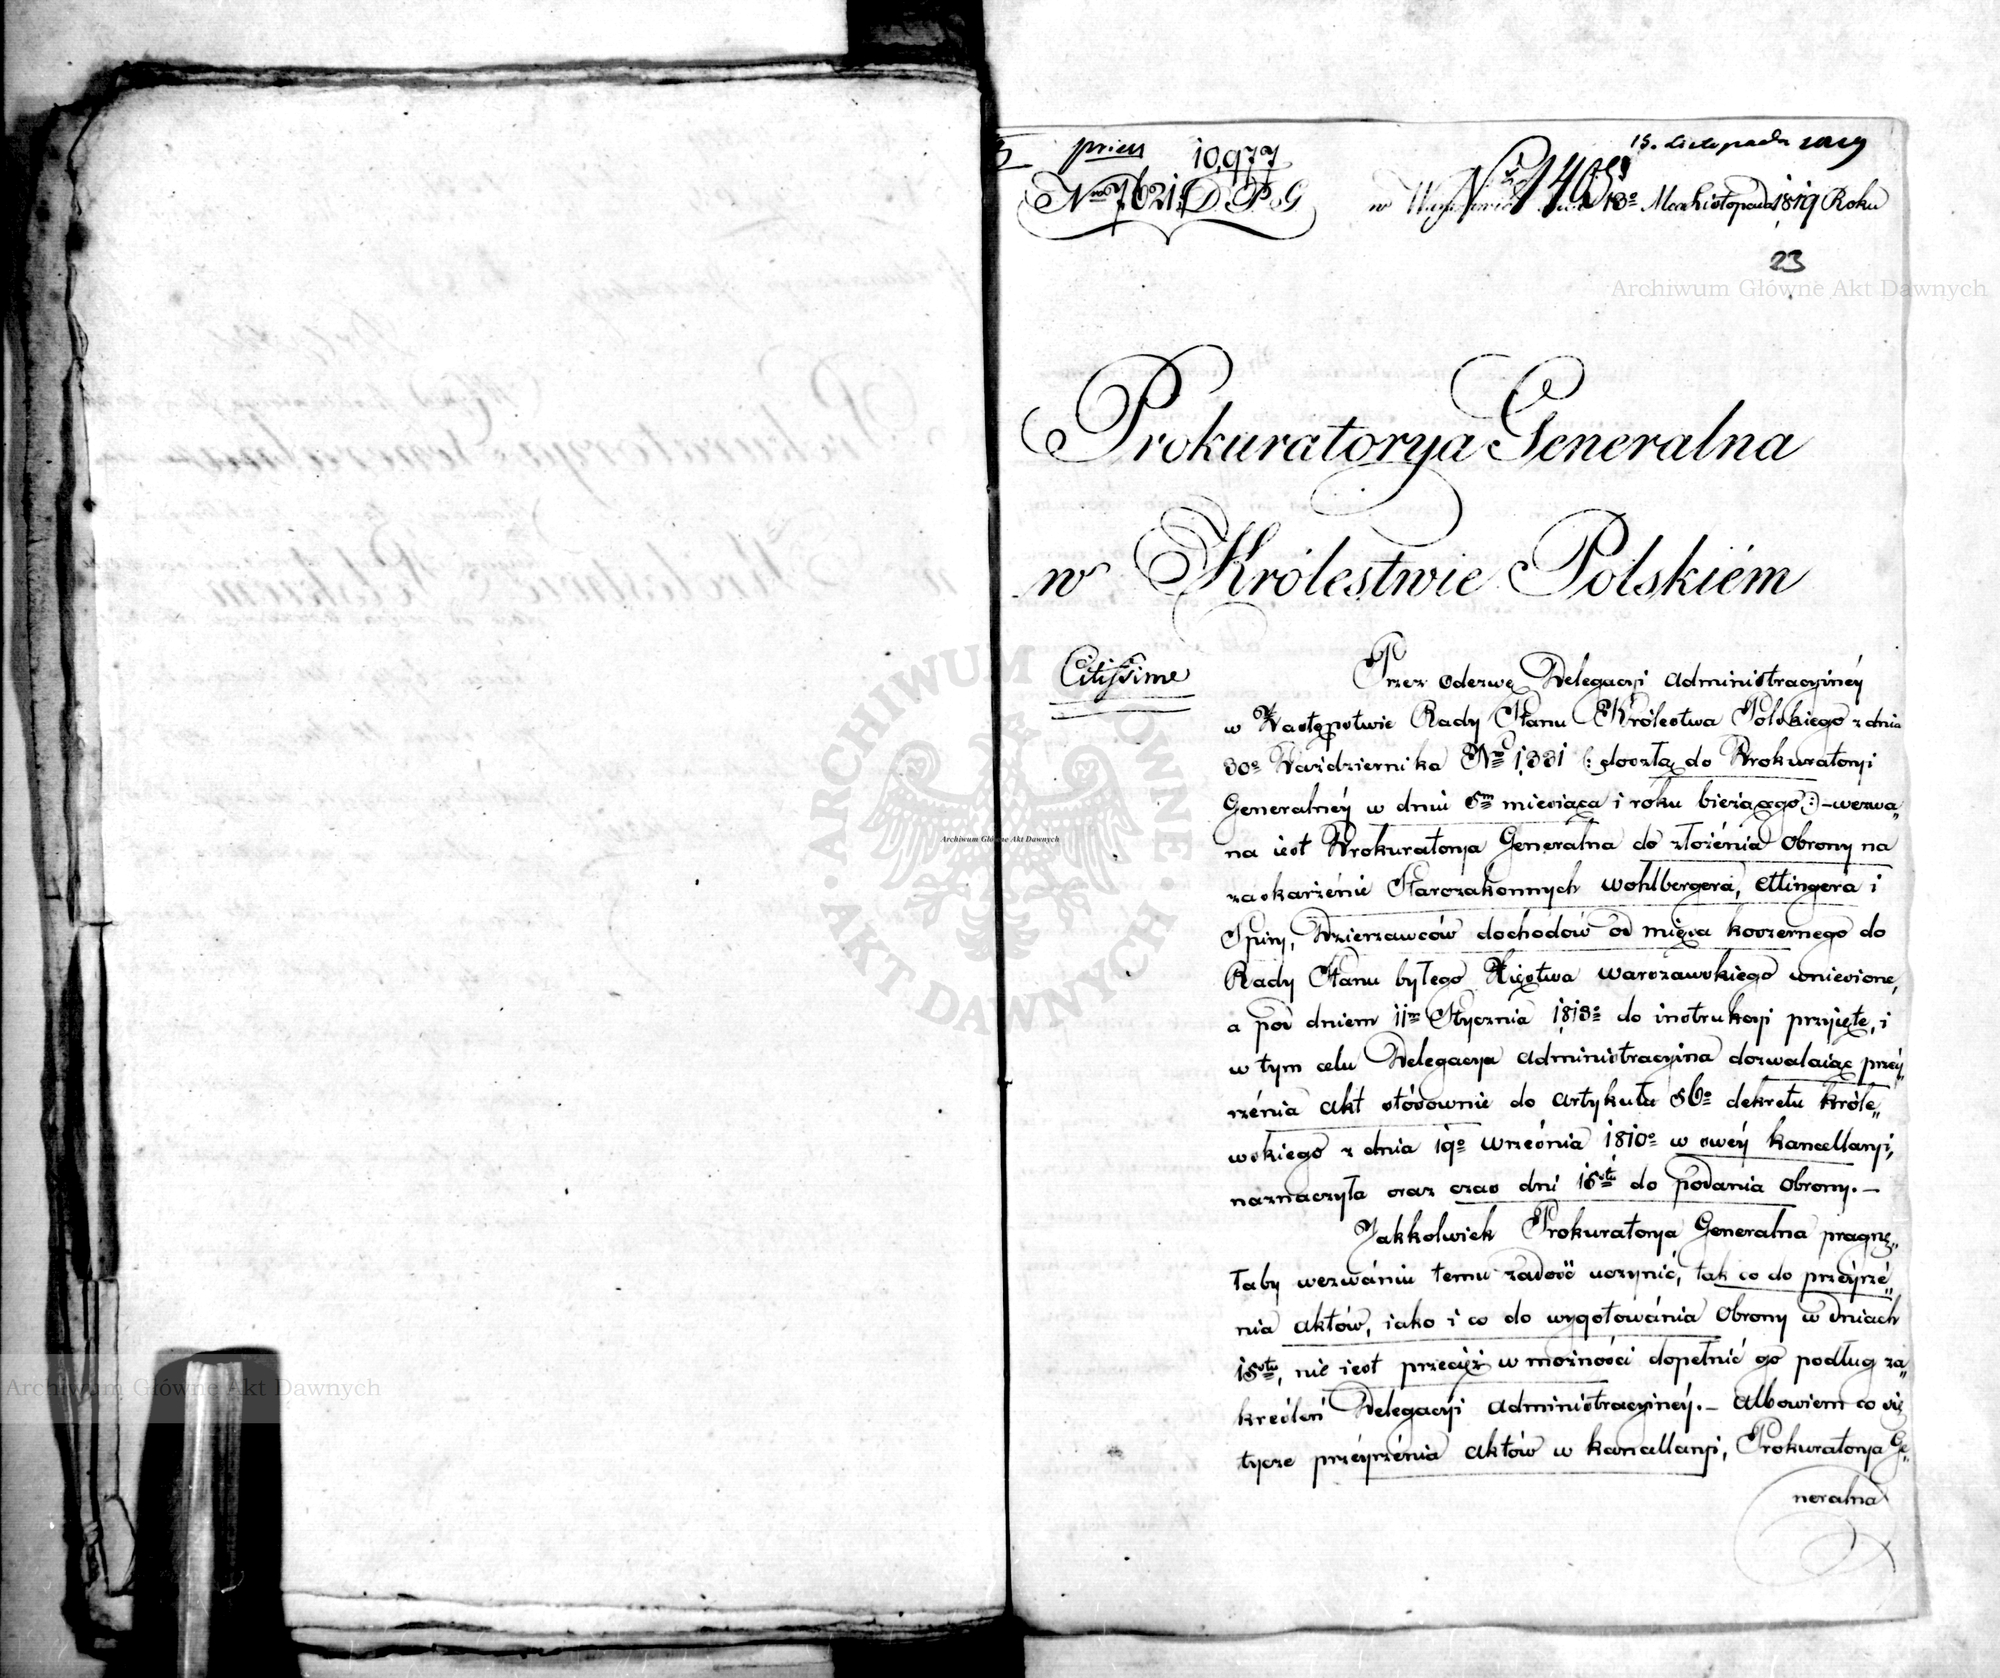 15. Listopada 1819
pries 10,977
Nro 7621 D.P.G.
No 1465
w Warszawie dnia 13o Mca Listopada 1819 Roku
23
Archiwum Główne Akt Dawnych
Prokuratorya Generalna
w Królestwie Polskiém
Citissime
Przez odezwę Delegacyi Administracyinéy
w Zastępstwie Rady Stanu Królestwa Polskiego z dnia
30o Października Nro 1331 (: doszłą do Prokuratoryi
Generalnéy w dniu 6m miesiąca i roku bieżącego :) – wezwa„
na iest Prokuratorya Generalna do złożénia Obrony na
zaskarżénie Starozakonnych Wohlbergera, Ettingera i
Spiry, Dzierżawców dochodów od mięsa koszernego do
Rady Stanu byłego Xięstwa Warszawskiego wniesione,
a pod dniem 11m Stycznia 1813o do instrukcyi przyięte, i
w tym celu Delegacya Administracyina dozwalaiąc przéy„
rzénia Akt stósownie do Artykułu 36o dekretu Króle„
wskiego z dnia 19o Września 1810o w swéy kancellaryi,
naznaczyła oraz czas dni 15stu do podania Obrony. –
Jakkolwiek Prokuratorya Generalna pragnę„
łaby wezwániu temu zadosć uczynić, tak co do przéyrzé„
nia Aktów, iako i co do wygotowánia Obrony w dniach
15stu, nie iest przecięż w możności dopełnić go podług za„
kréśleń Delegacyi Administracyinéy. – Albowiem co się
tycze przéyrzénia Aktów w kancellaryi, Prokuratorya Ge„
neralna
ARCHIWUM GŁÓWNE AKT DAWNYCH
Archiwum Główne Akt Dawnych
Archiwum Główne Akt Dawnych